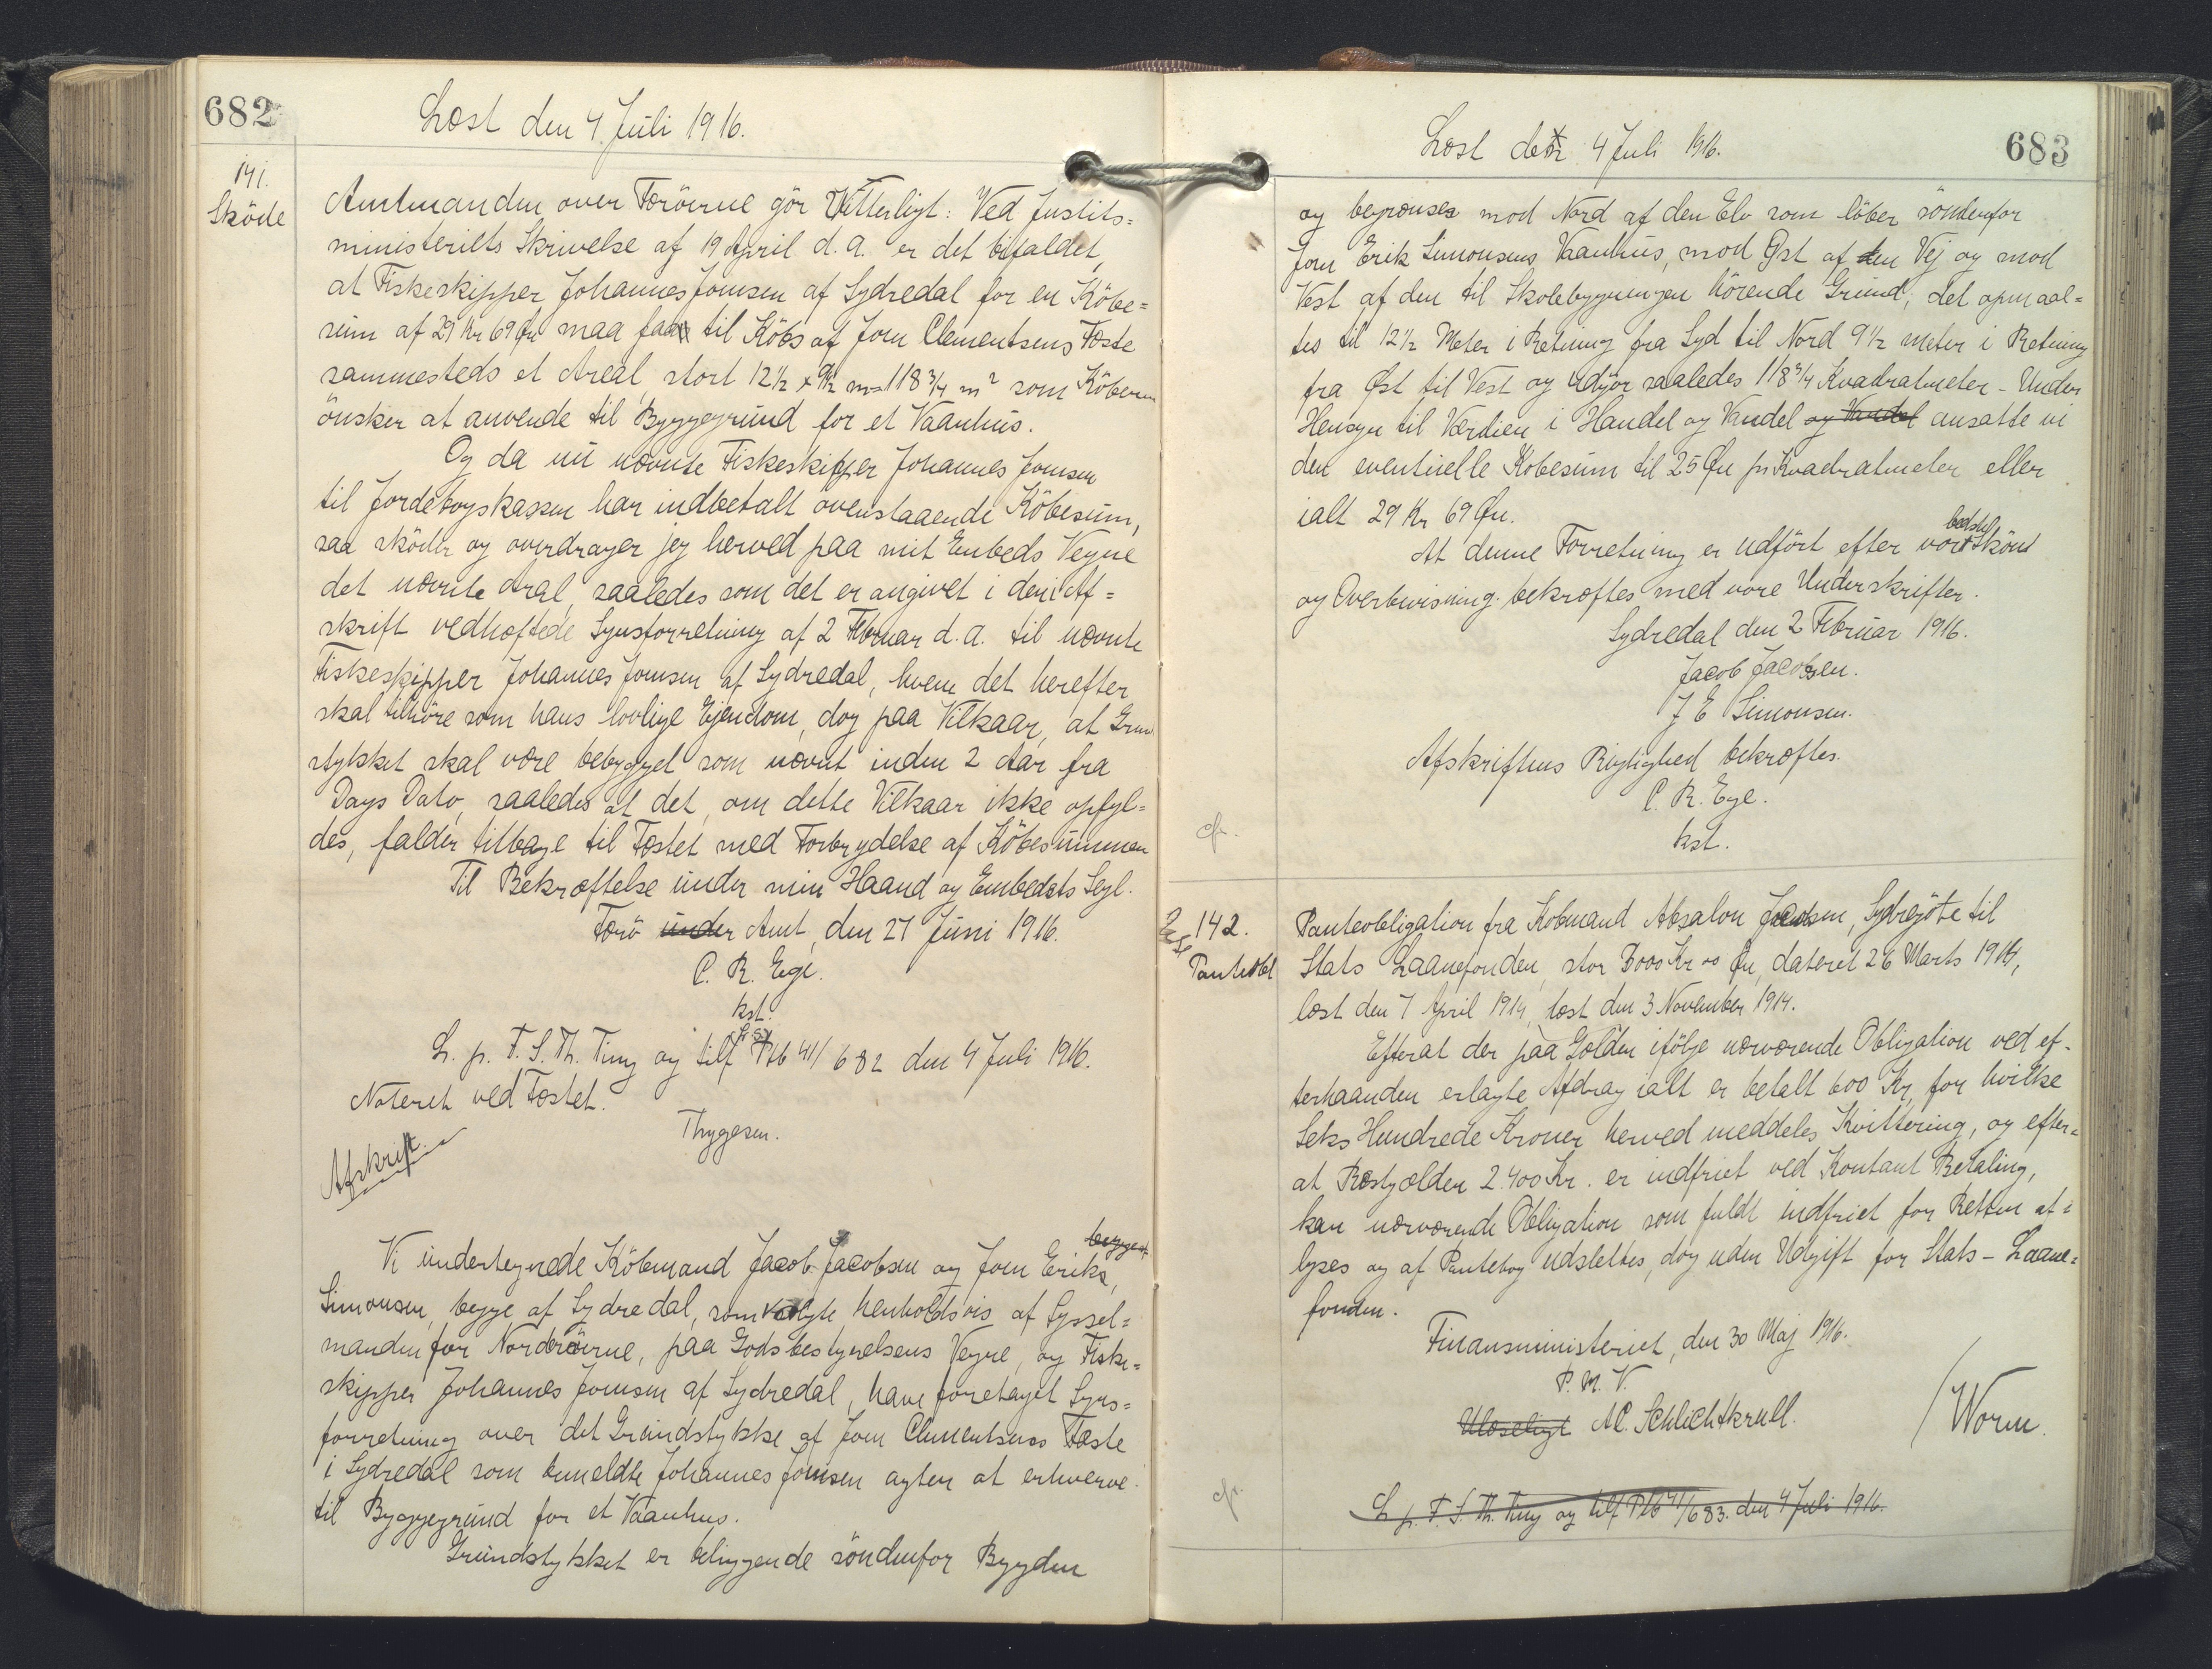 682
Læst den 4. Juli 1916.
141.
Sköde
Amtmanden over Færöerne gör Vitterligt: Ved Justits=
ministeriets Skrivelse af 19 April d. A. er det bifaldet,
at Fiskeskipper Johannes Joensen af Sydredal for en Köbe=
sum af 29 Kr 69 Øre maa faa til Köbs af Joen Clementsens Fæste
sammesteds et Areal, stort 12½ x 9½ m = 118¾ m² som Köberen
önsker at anvende til Byggegrund for et Vaanhus.
Og da nu nævnte Fiskeskipper Johannes Joensen
til Jordebogskassen har indbetalt ovenstaaende Köbesum,
saa sköder og overdrager jeg herved paa mit Embeds Vegne
det nævnte Aral, saaledes som det er angivet i den i Af=
skrift vedhæftede Synsforretning af 2 Februar d. A. til nævnte
Fiskeskipper Johannes Joensen af Sydredal, hvem det herefter
skal tilhöre som hans lovlige Ejendom, dog paa Vilkaar, at Grund
stykket skal være bebygget som nævnt inden 2 Aar fra
Dags Dato, saaledes at det, om dette Vilkaar ikke opfyl=
des, falder tilbage til Fæstet med Forbrydelse af Köbesummen
Til Bekræftelse under min Haand og Embedets Segl.
Færö under Amt, den 27 Juni 1916.
C. R. Ege.
kst.
(L.S.)
L. p. F. S. Th. Ting og tilf Ptb 41/682 den 4 Juli 1916.
Noteret ved Fæstet.
Thygesen.
Afskrift.
begge af
Vi undertegnede Köbmand Jacob Jacobsen og Joen Eriks,
Simonsen, begge af Sydredal, som valgte henholdsvis af Syssel=
manden for Norderöerne, paa Godsbestyrelsens Vegne, og Fiske=
skipper Johannes Joensen af Sydredal, have foretaget Syns=
forretning over det Grundstykke af Joen Clementsens Fæste
i Sydredal som anmeldte Johannes Joensen agter at erhverve
til Byggegrund for et Vaanhus.
Grundstykket er beliggende söndenfor Bygden
683
Læst den 4 Juli 1916.
og begrænses mod Nord af den Elv som löber söndenfor
Joen Erik Simonsens Vaanhus, mod Øst af den Vej og mod
Vest af den til Skolebygningen hörende Grund, det opmaal=
tes til 12½ Meter i Retning fra Syd til Nord 9½ meter i Retning
fra Øst til Vest og udgör saaledes 118¾ Kvadratmeter - Under
Hensyn til Værdien i Handel og Vandel og Vandel ansatte vi
den eventuelle Köbesum til 25 Øre pr Kvadratmeter eller
ialt 29 Kr 69 Øre.
bedste
At denne Forretning er udfört efter vort Skön
og Overbevisning bekræftes med vore Underskrifter.
Sydredal den 2 Februar 1916.
Jacob Jacobsen.
J E Simonsen.
Afskriftens Rigtighed bekræftes.
C. R. Ege.
kst.
cfr.
142.
Panteobl
Panteobligation fra Köbmand Absalon Joensen, Sydregöte til
Stats Laanefonden, stor 3000 Kr 00 Øre, dateret 26 Marts 1914,
læst den 7 April 1914, læst den 3 November 1914.
Efterat der paa Gælden ifölge nærværende Obligation ved ef=
terhaanden erlagte Afdrag ialt er betalt 600 Kr, for hvilke
Seks Hundrede Kroner herved meddeles Kvittering, og efter=
at Restgælden 2.400 Kr. er indfriet ved Kontant Betaling,
kan nærværende Obligation som fuldt indfriet for Retten af=
lyses og af Pantebog udslettes, dog uden Udgift for Stats-Laane=
fonden.
Finansministeriet, den 30 Maj 1916.
P. M. V.
Ulæseligt M. Schlichtkrull.
/ Worm.
cfr.
L p. F. S. Th. Ting og tilf Ptb 41/683. den 4 Juli 1916.